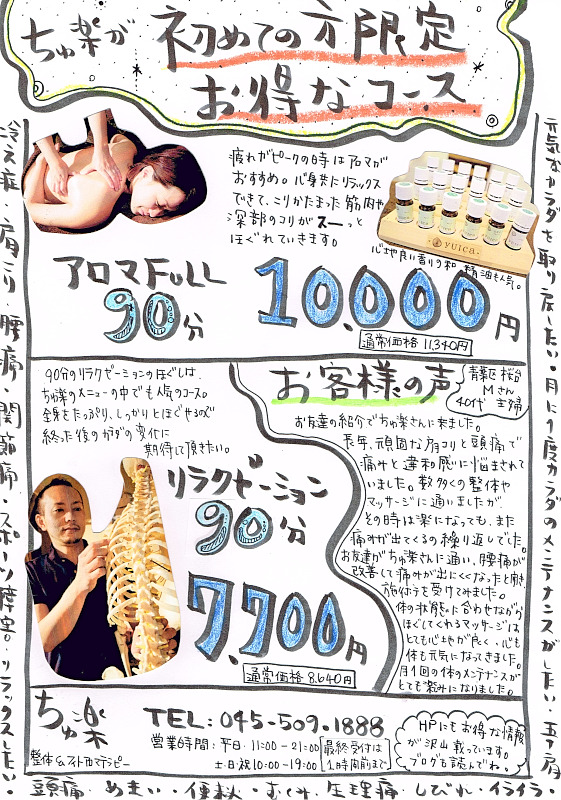 ちゅ楽が
初めての方限定
お得なコース
疲れがピークの時はアロマが
おすすめ。心身共にリラックス
できて、こりかたまった筋肉や
深部のコリがスーーっと
ほぐれていきます。
yuica.
心地良い香りの和精油も人気。
アロマFULL
90分
10,000円
通常価格 11,340円
90分のリラクゼーションのほぐしは、
ちゅ楽のメニューの中でも人気のコース。
全身をたっぷり、しっかりとほぐせるので
終った後のカラダの変化に
期待して頂きたい。
リラクゼーション
90分
7,700円
通常価格 8,640円
お客様の声
青葉区 桜台
Mさん
40代 主婦
お友達の紹介でちゅ楽さんに来ました。
長年、頑固な肩コリと頭痛で
痛みと違和感に悩まされて
いました。数多くの整体や
マッサージに通いましたが
その時は楽になっても、また
痛みが出てくるの繰り返しでした。
お友達がちゅ楽さんに通い、腰痛が
改善して痛みが出にくくなったと聞き
施術を受けてみました。
体の状態に合わせながら
ほぐしてくれるマッサージは
とても心地が良く、心も
体も元気になってきました。
月1回の体のメンテナンスが
とても楽みになりました。
ちゅ楽
整体&アストロセラピー
TEL:045-509-1888
営業時間:平日・11:00-21:00
土・日・祝10:00-19:00
最終受付は
1時間前まで
HPにもお得な情報
が沢山載っています。
ブログも読んでね。
冷え症・肩こり・腰痛・関節痛・スポーツ障害。リラックスしたい・
元気なカラダを取り戻したい・月に1度カラダのメンテナンスがしたい・五十肩
頭痛・めまい・便秘・むくみ・生理痛・しびれ・イライラ・